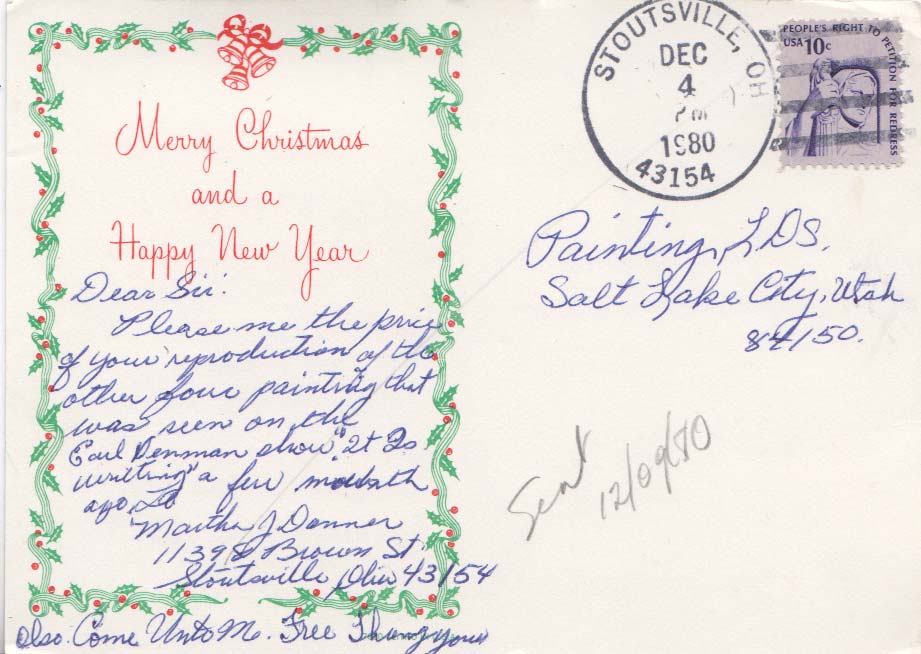 Merry Christmas
and a
Happy New Year
Dear Sir:
Please me the price
of your reproduction of the
other four painting that
was seen on the
Earl Denman show "It Is
writing" a few
ago. To
Martha J Donner
Brown St.
Stoutsville, Ohio 43154
also. Come Unto M. Free
STOUTSVILLE, OH
DEC
4
PM
1980
43154
PEOPLE'S RIGHT TO PETITION FOR REDRESS
USA 10c
Painting, LDS.
Salt Lake City, Utah
84150.
Sent
12/09/80